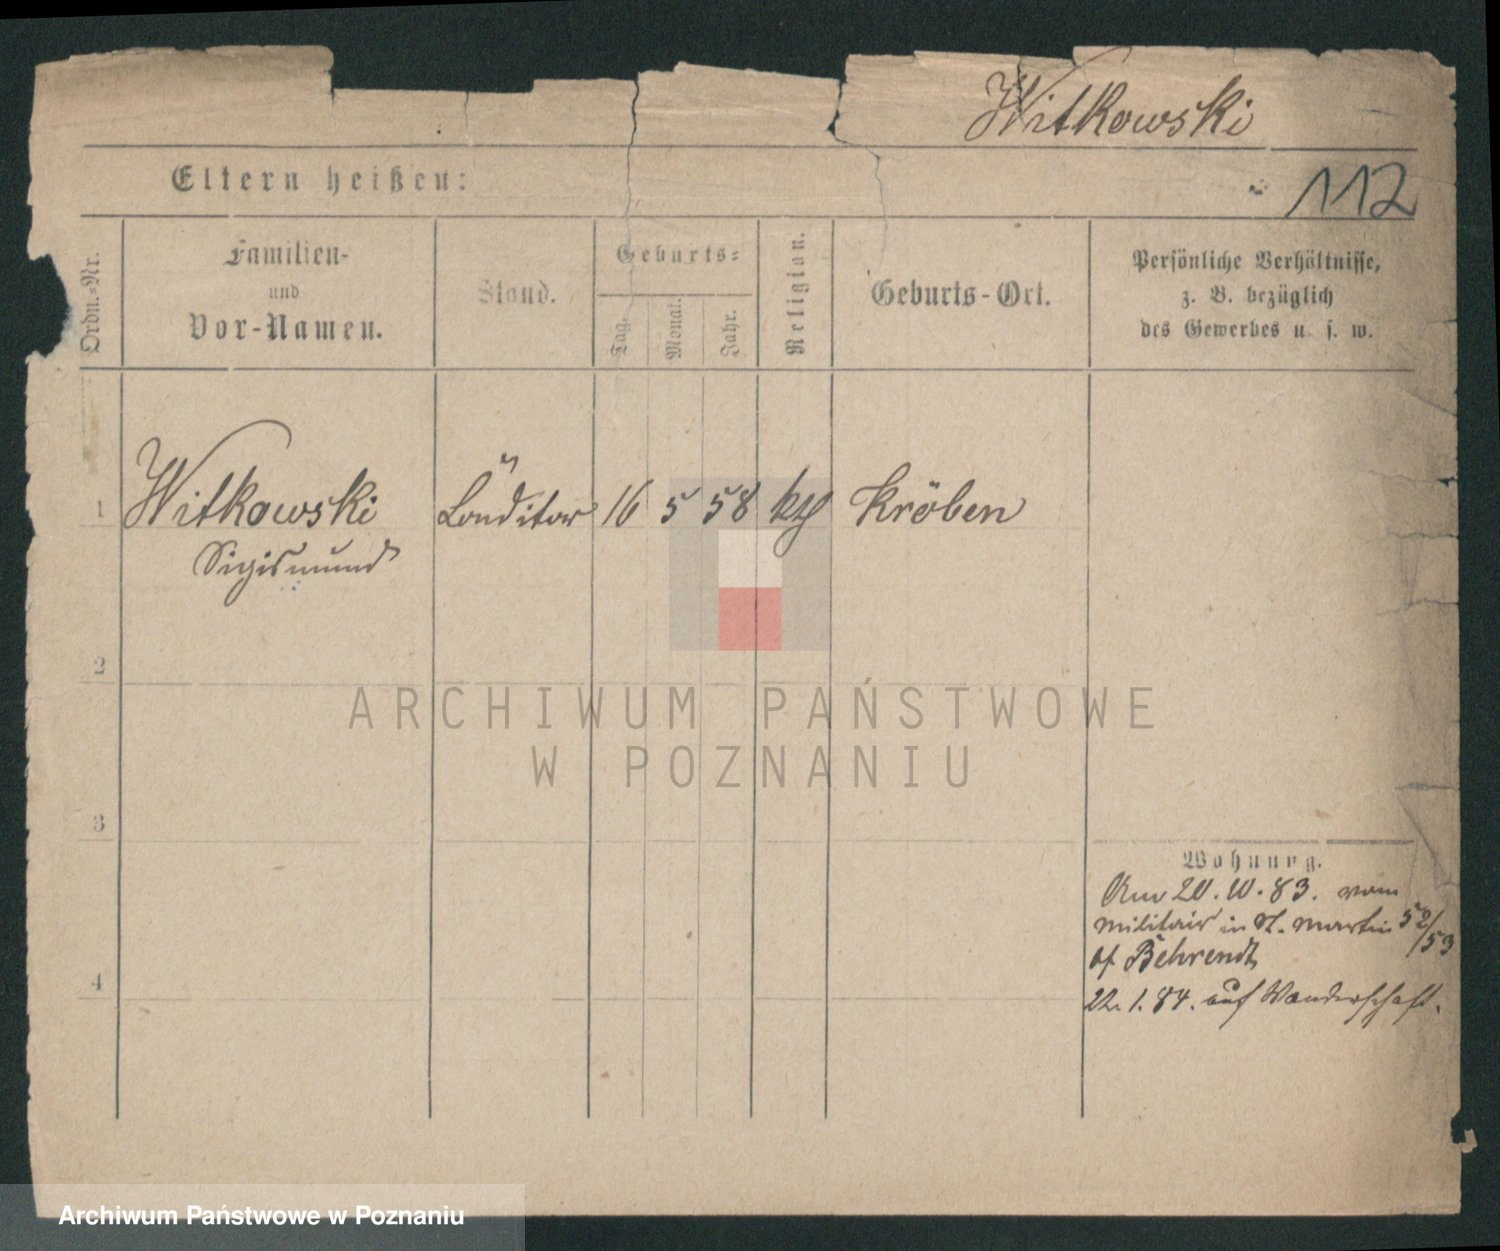 Witkowski
Eltern heißen:
112
Ordn.-Nr.
Familien-
und
Vor-Namen.
Stand.
Geburts-
Tag.
Monat.
Jahr.
Religion.
Geburts-Ort.
Persönliche Verhältnisse,
z. B. bezüglich
des Gewerbes u. s. w.
1
Witkowski
Sigismund
Conditor
16
5
58
kth
Kröben
2
3
4
Wohnung.
Am 20. 10. 83. vom
Militair in St. Martin 52/53
bf Behrendt
22. 1. 84. auf Wanderschaft.
ARCHIWUM PAŃSTWOWE
W POZNANIU
Archiwum Państwowe w Poznaniu